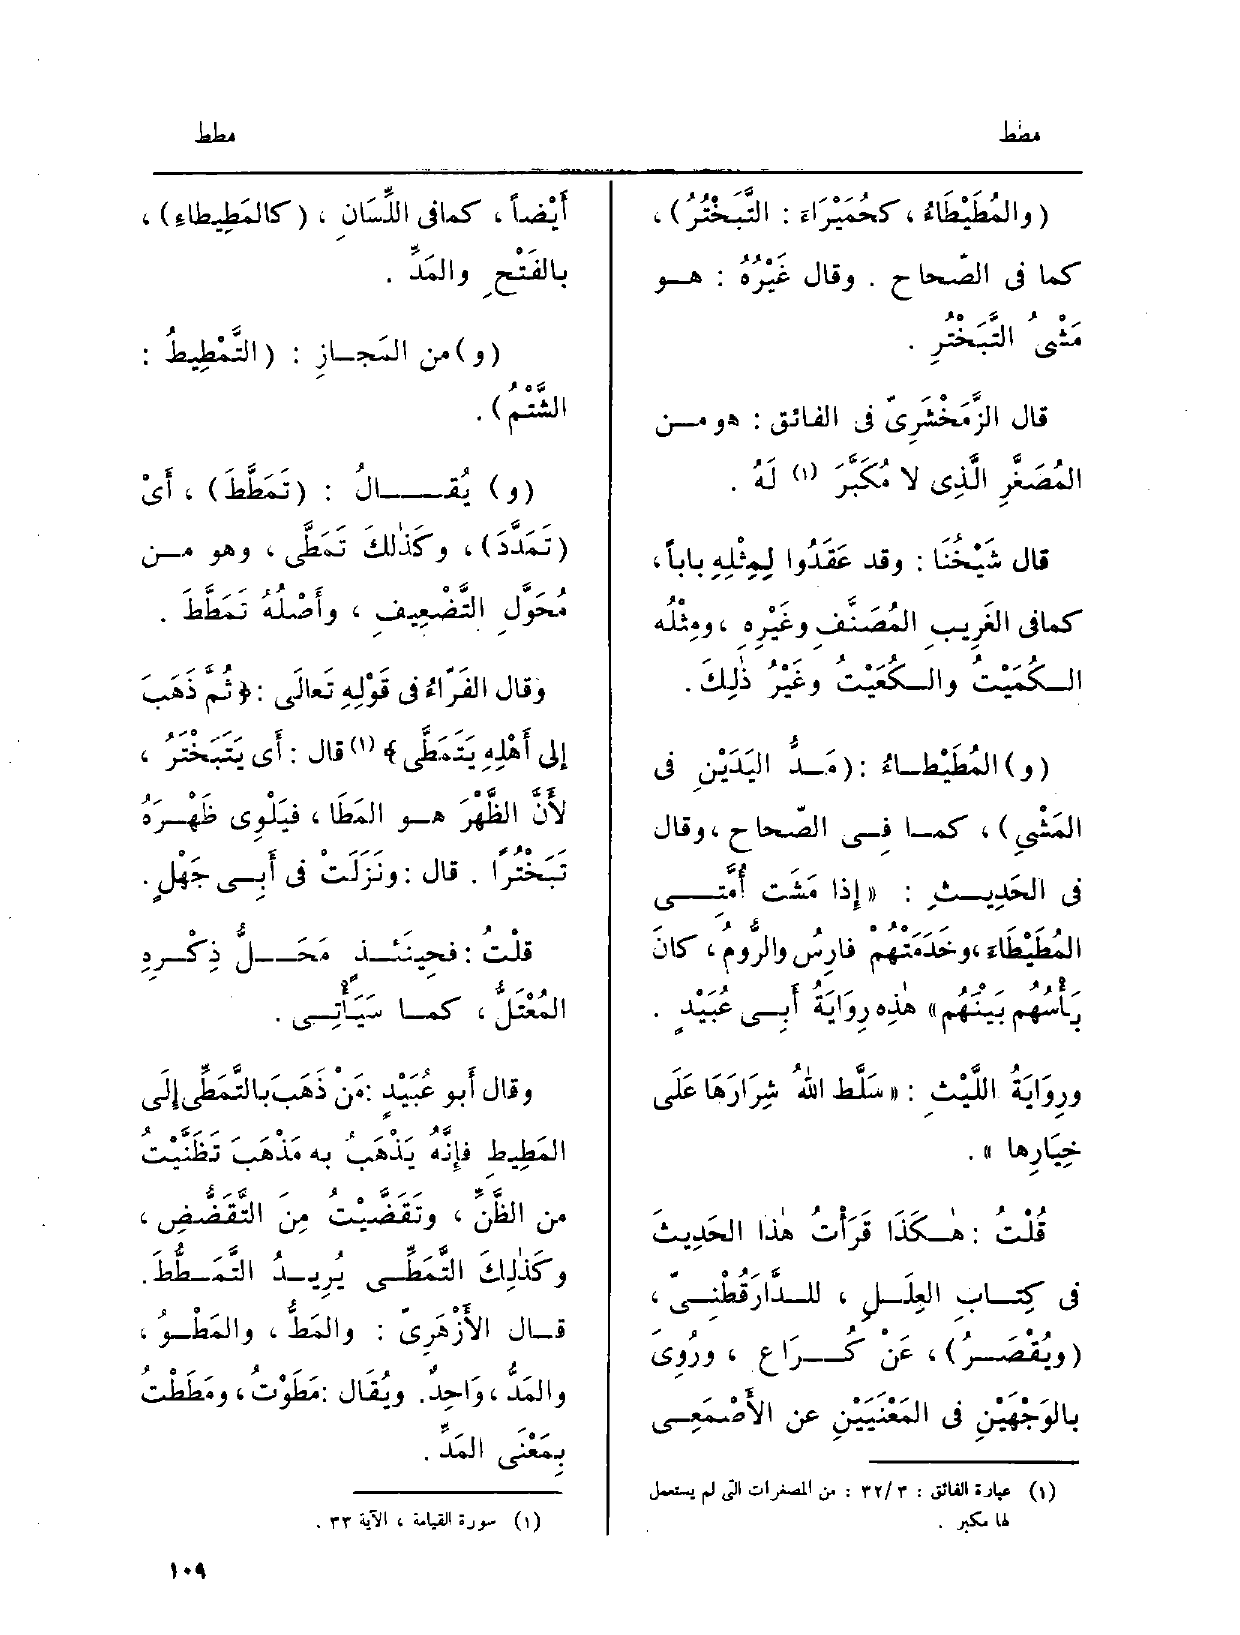 مطط
مطط
(والمُطَيْطَاءُ ، كحُمَيْرَاءَ : التَّبَخْتُرُ) ،
كما فى الصّحاح . وقال غَيْرُهُ : هـو
مَشْىُ التَّبَخْتُرِ .
قال الزَّمَخْشَرِىّ فى الفائق : هو مـن
المُصَغَّرِ الَّذِى لا مُكَبَّرَ (١) لَهُ .
قال شَيْخُنَا : وقد عَقَدُوا لِمِثْلِهِ باباً ،
كمافى الغَرِيبِ المُصَنَّفِ وغَيْرِهِ ، ومِثْلُه
الـكُمَيْتُ والـكُعَيْتُ وغَيْرُ ذٰلِكَ .
(و) المُطَيْطـاءُ : (مَـدُّ اليَدَيْنِ فى
المَشْىِ) ، كمـا فِـى الصّحاح ، وقال
فى الحَدِيـثِ : « إِذا مَشَت أُمَّتِـى
المُطَيْطَاءَ ، وخَدَمَتْهُمْ فارِسُ والرُّومُ ، كانَ
بَأْسُهُم بَيْنَهُم » هٰذِه رِوَايَةُ أَبِـى عُبَيْدٍ .
ورِوَايَةُ اللَّيْثِ : « سَلَّط اللهُ شِرَارَهَا عَلَى
خِيَارِها » .
قُلْتُ : هٰـكَذَا قَرَأْتُ هٰذا الحَدِيثَ
فى كِتـابِ العِلَـلِ ، للـدَّارَقُطْنِـىّ ،
(ويُقْصَـرُ) ، عَنْ كُـرَاع ، ورُوِىَ
بالوَجْهَيْنِ فى المَعْنَيَيْنِ عن الأَصْمَعِـى
(١) عبارة الفائق : ٣٢/٣ : من المصغرات التى لم يستعمل
لها مكبر .
أَيْضاً ، كمافى اللِّسَانِ ، (كالمَطِيطاءِ) ،
بالفَتْحِ والمَدِّ .
(و) من المَجـازِ : (التَّمْطِيطُ :
الشَّتْمُ) .
(و) يُقـالُ : (تَمَطَّطَ) ، أَىْ
(تَمَدَّدَ) ، وكَذٰلكَ تَمَطَّى ، وهو مـن
مُحَوَّلِ التَّضْعِيفِ ، وأَصْلُهُ تَمَطَّطَ .
وقال الفَرّاءُ فى قَوْلِهِ تَعالَى : ﴿ ثُمَّ ذَهَبَ
إِلى أَهْلِهِ يَتَمَطَّى ﴾ (١) قال : أَى يَتَبَخْتَرُ ،
لأَنَّ الظَّهْرَ هـو المَطَا ، فيَلْوِى ظَهْـرَهُ
تَبَخْتُرًا . قال : ونَزَلَتْ فى أَبِـى جَهْلٍ .
قلْتُ : فحِينَئـذ مَحَـلُّ ذِكْـرِهِ
المُعْتَلُّ ، كمـا سَيَأْتِـى .
وقال أَبو عُبَيْدٍ : مَنْ ذَهَبَ بالتَّمَطِّى إِلَى
المَطِيطِ فإِنَّهُ يَذْهَبُ به مَذْهَبَ تَظَنَّيْتُ
من الظَّنِّ ، وتَقَضَّيْتُ مِنَ التَّقَضُّضِ ،
وكَذٰلِكَ التَّمَطِّـى يُرِيـدُ التَّمَـطُّطَ .
قـال الأَزْهَرِىّ : والمَطُّ ، والمَطْـوُ ،
والمَدُّ ، وَاحِدٌ . ويُقَال : مَطَوْتُ ، ومَطَطْتُ
بِمَعْنَى المَدِّ .
(١) سورة القيامة ، الآية ٣٣ .
١٠٩